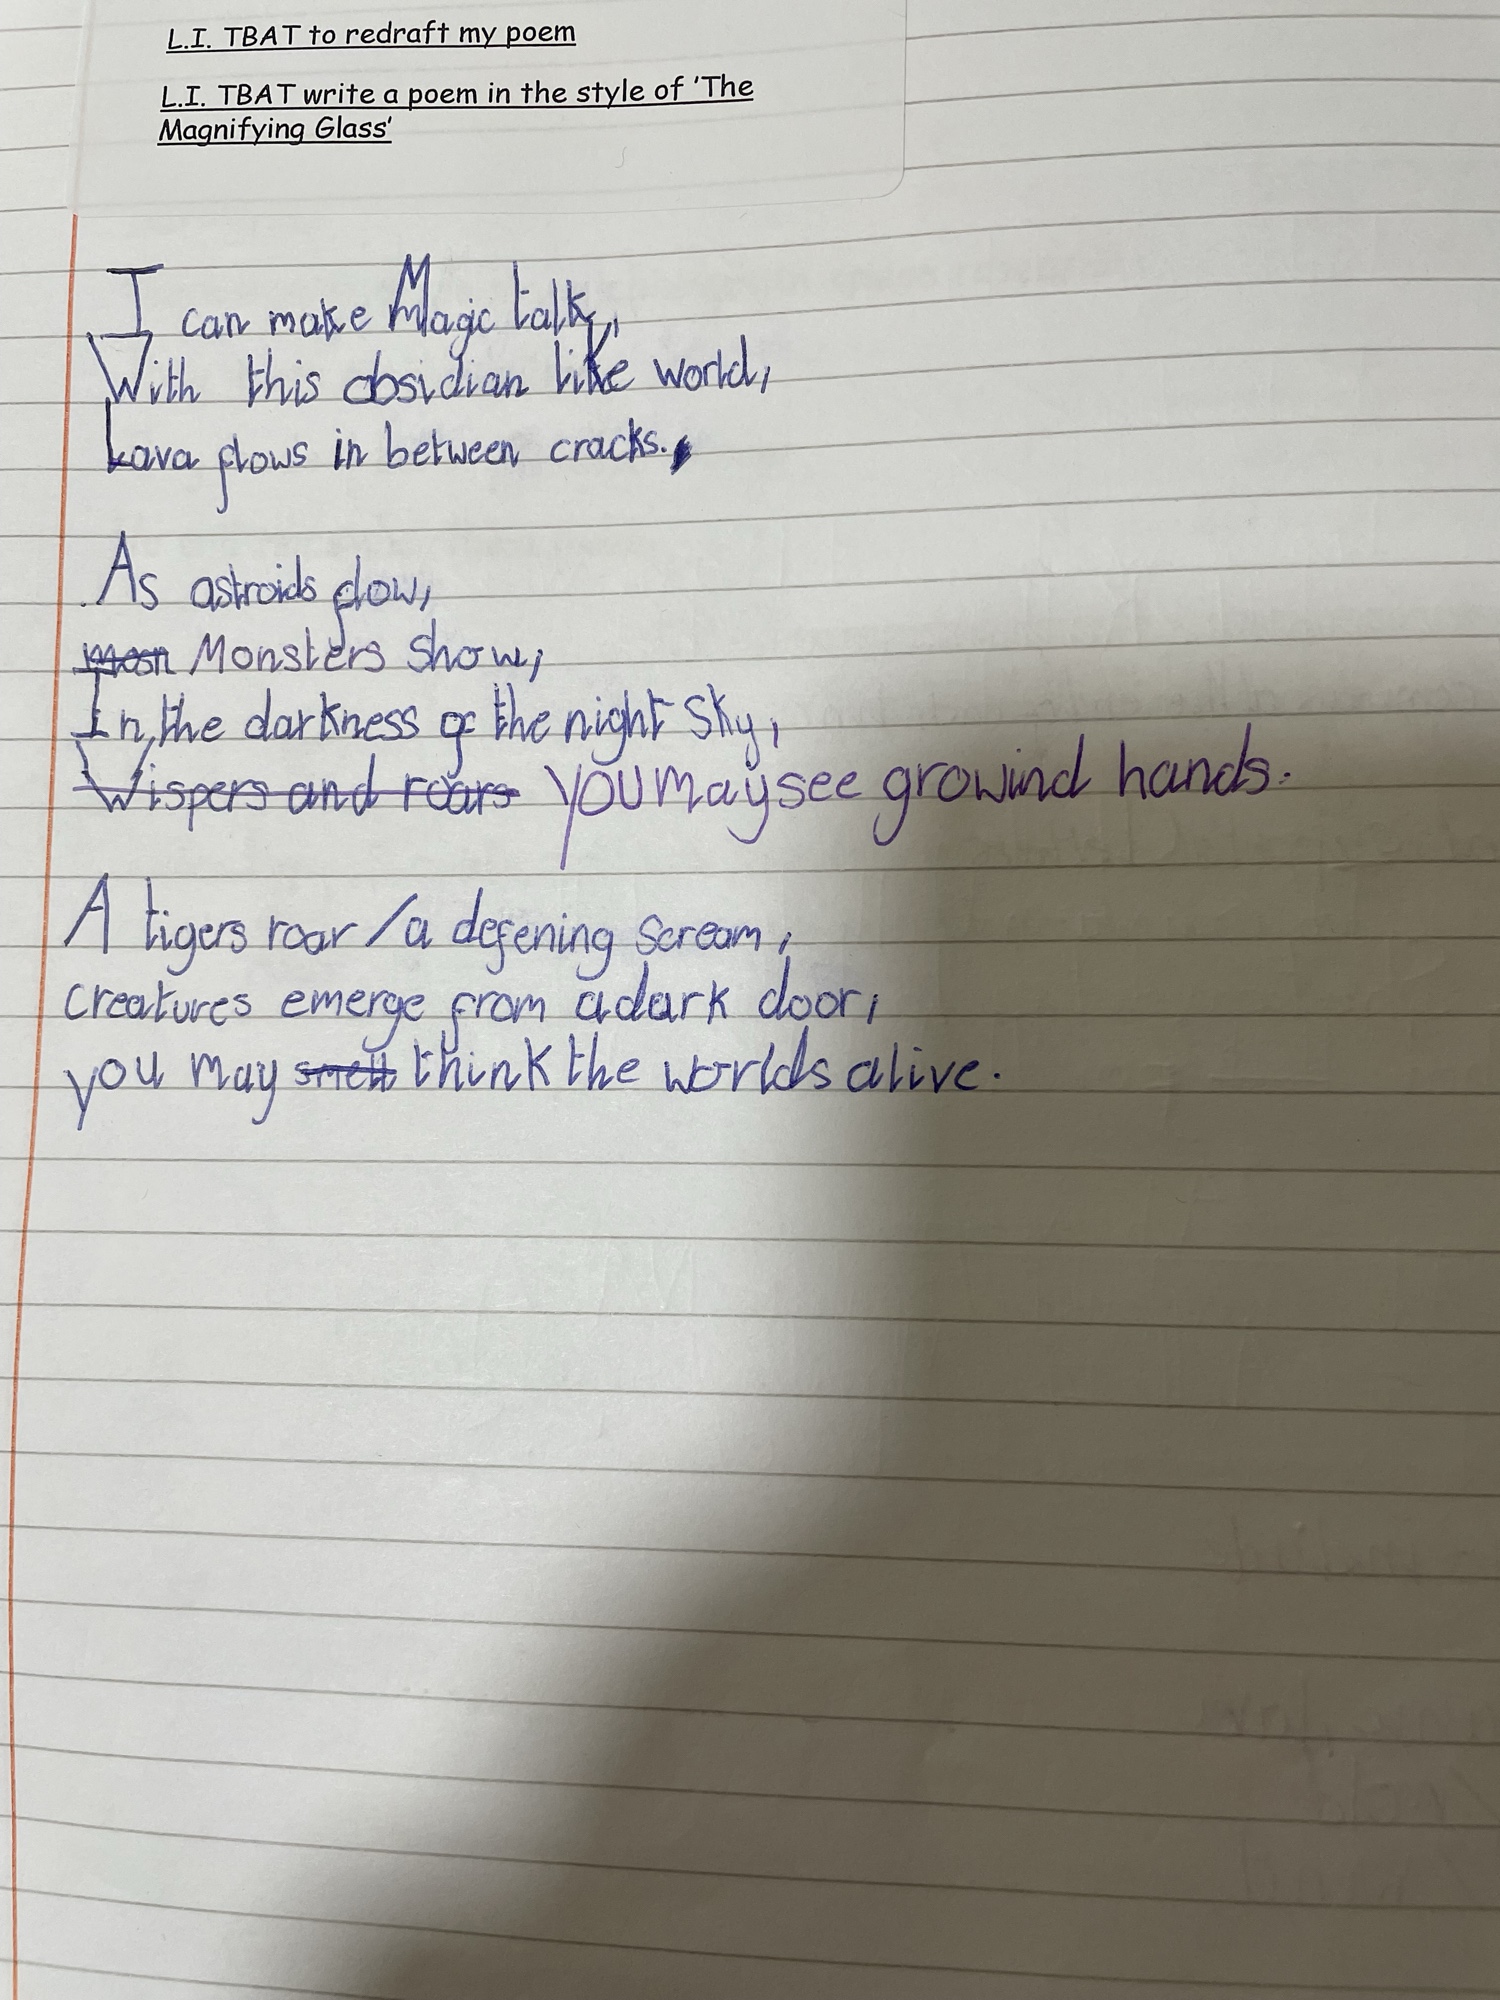 L.I. TBAT to redraft my poem
L.I. TBAT write a poem in the style of 'The
Magnifying Glass'
I can make Magic talk,
With this obsidian like world,
Lava flows in between cracks.
As astroids flow,
mosn Monsters show,
In the darkness of the night sky,
Wispers and roars you may see growind hands.
A tigers roar / a defening scream,
creatures emerge from a dark door,
you may smell think the worlds alive.